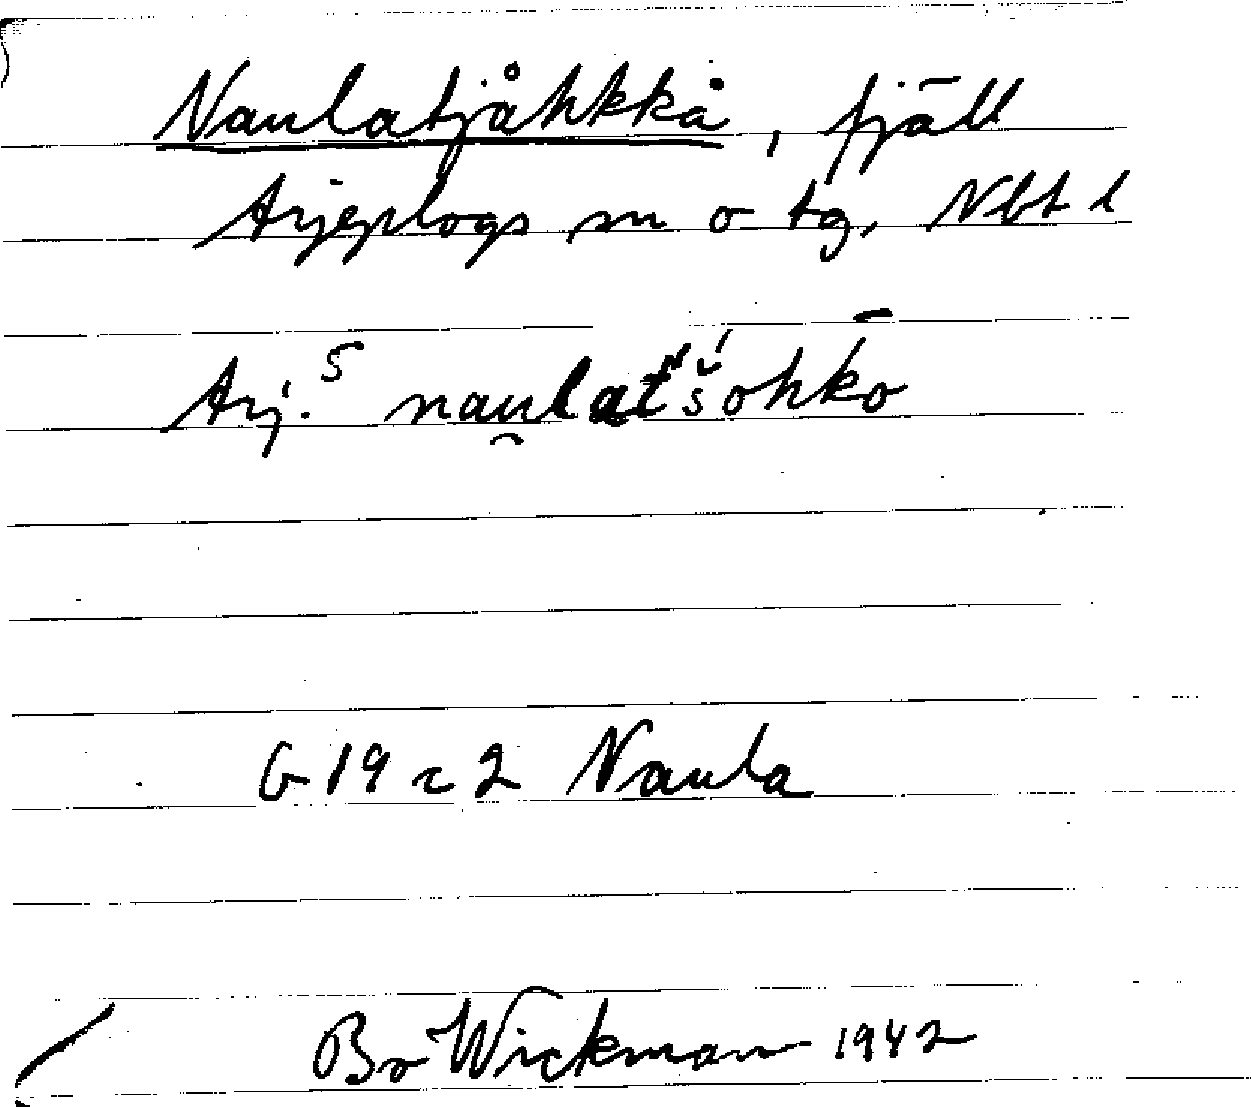 Naulatjåhkkå, fjäll
Arjeplogs sn o tg, Nbt l
Arj.S nau̯latšohkō
G 19 c 2 Naula
Bo Wickman 1942